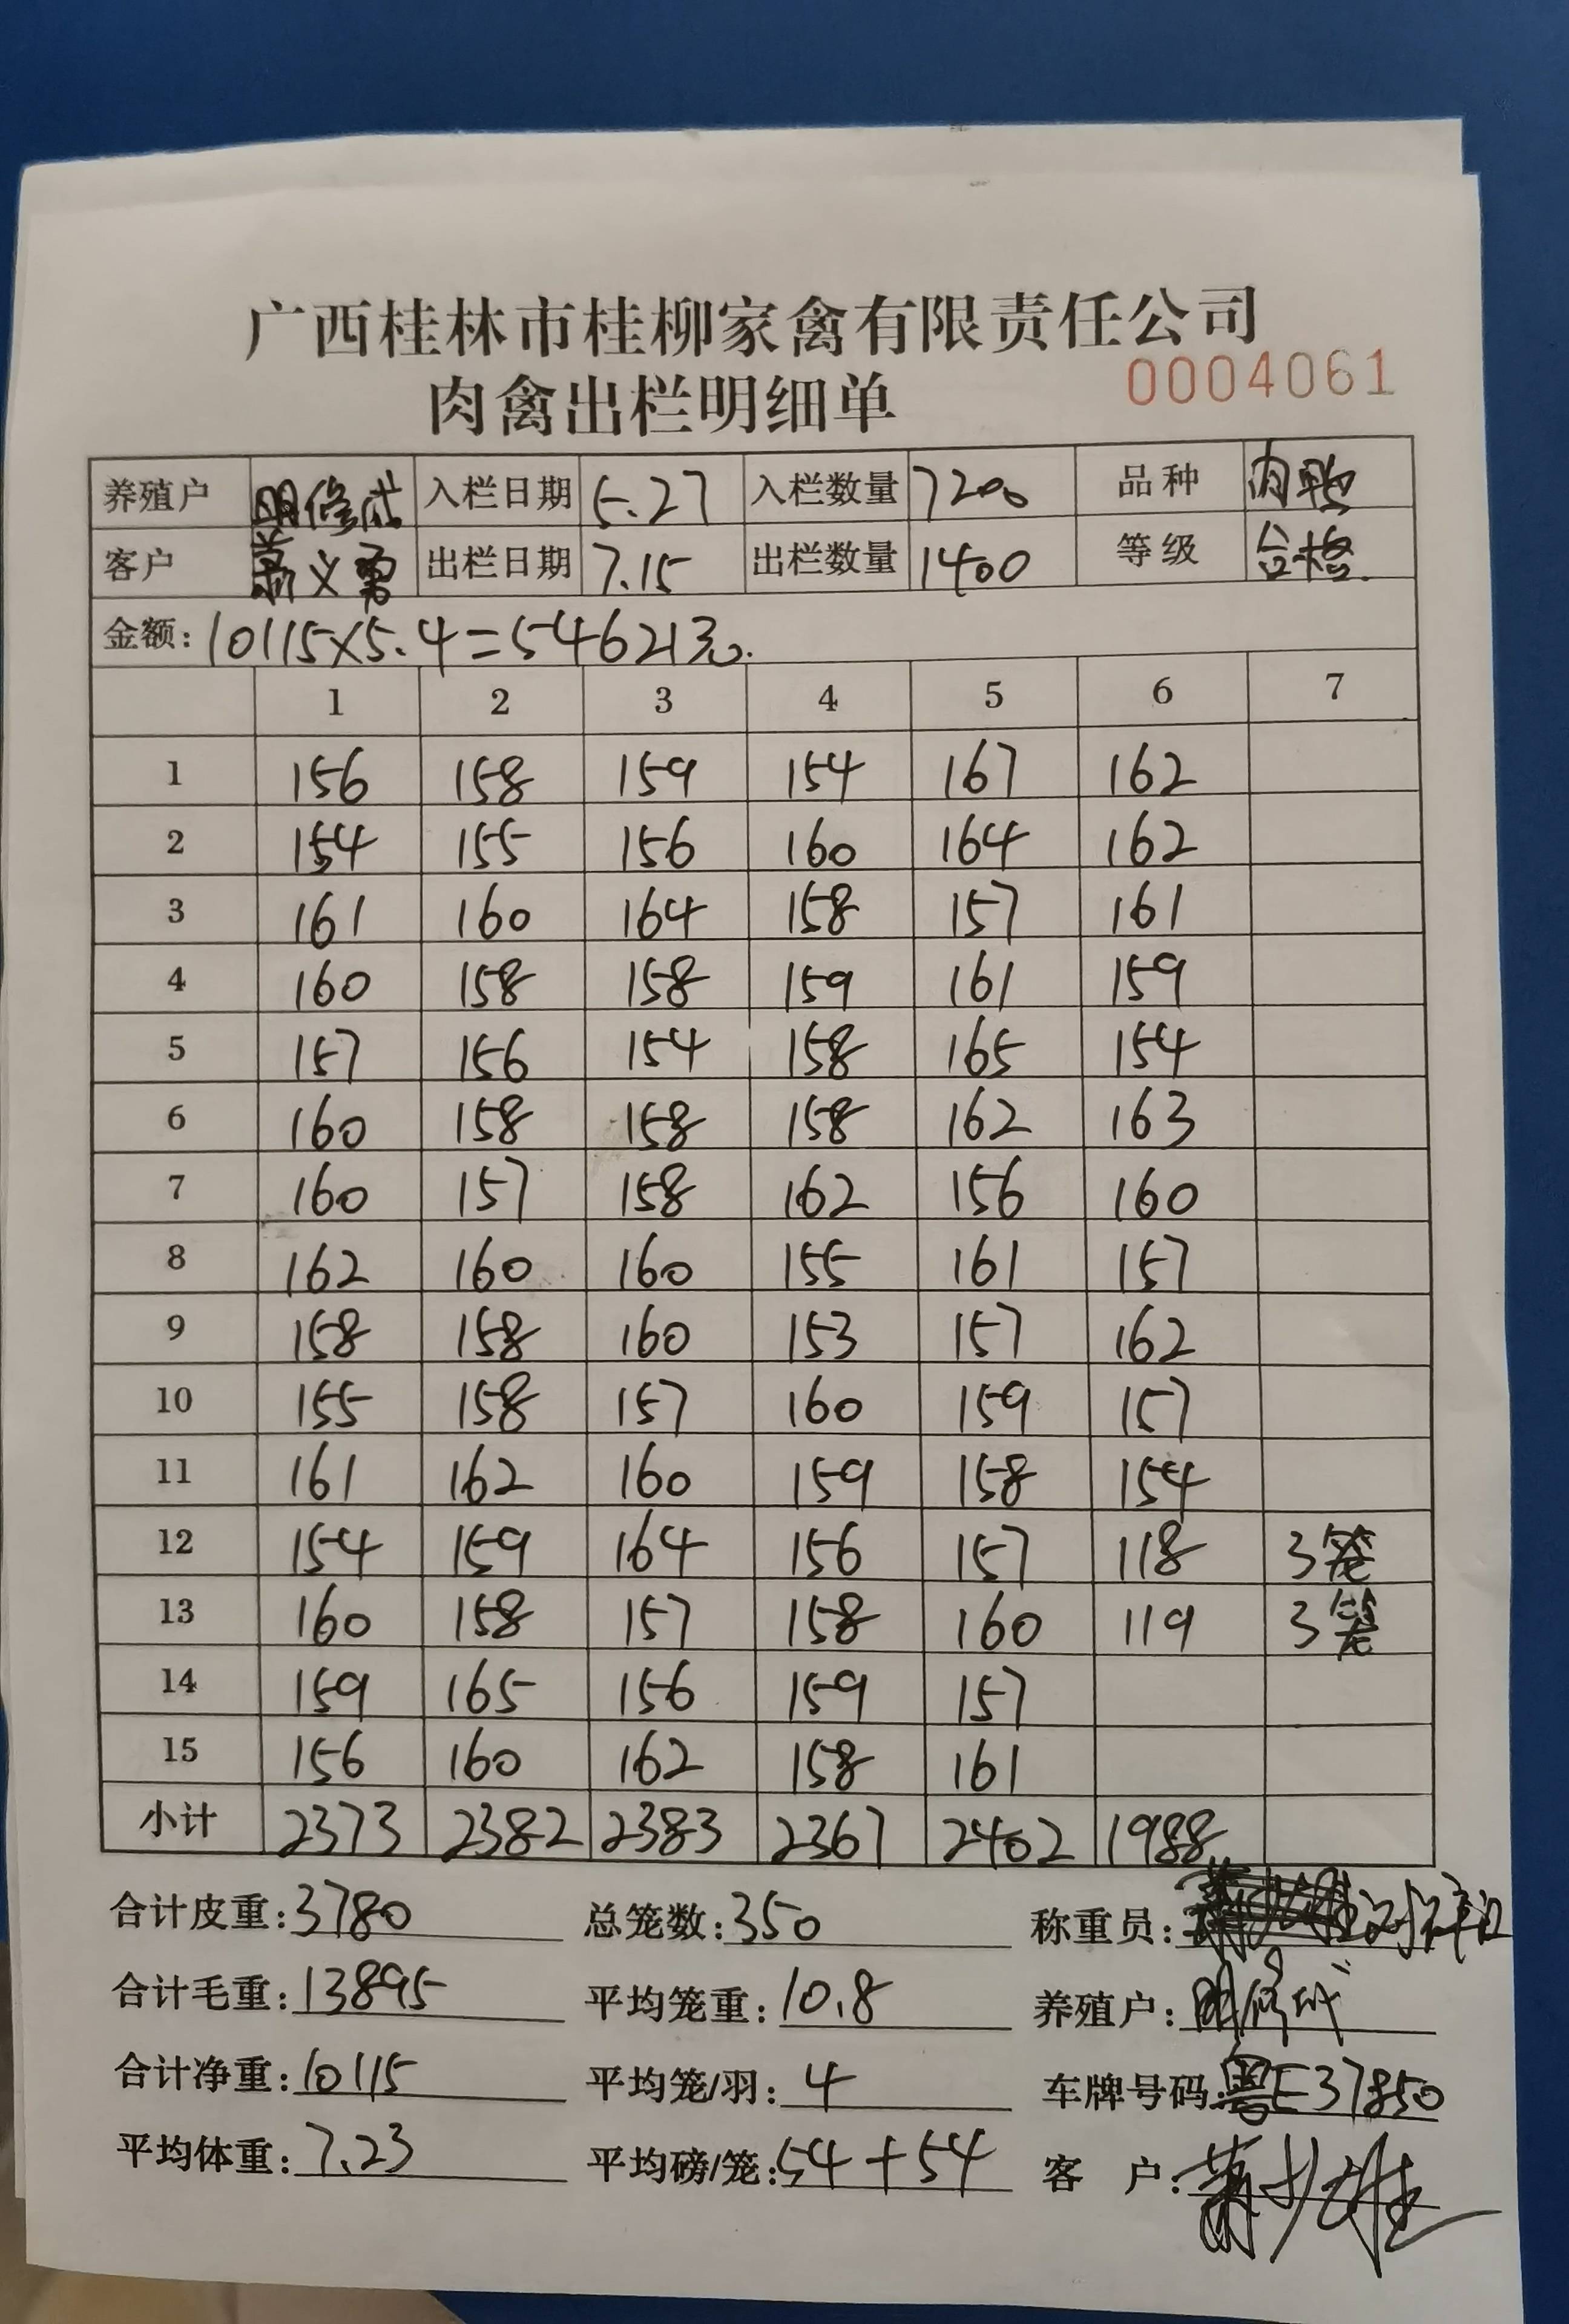 广西桂林市桂柳家禽有限责任公司
肉禽出栏明细单 0004061
养殖户 明修成 入栏日期 5.27 入栏数量 7200 品种 肉鸭
客户 义勇 出栏日期 7.15 出栏数量 1400 等级 合格
金额: 10115×5.4=54621元.
1 2 3 4 5 6 7
1 156 158 159 154 167 162
2 154 155 156 160 164 162
3 161 160 164 158 157 161
4 160 158 158 159 161 159
5 157 156 154 158 165 154
6 160 158 158 158 162 163
7 160 157 158 162 156 160
8 162 160 160 155 161 157
9 158 158 160 153 157 162
10 155 158 157 160 159 157
11 161 162 160 159 158 154
12 154 159 164 156 157 118 3笼
13 160 158 157 158 160 119 3笼
14 159 165 156 159 157
15 156 160 162 158 161
小计 2373 2382 2383 2367 2402 1988
合计皮重: 3780 总笼数: 350 称重员:
合计毛重: 13895 平均笼重: 10.8 养殖户: 明修成
合计净重: 10115 平均笼/羽: 4 车牌号码: 粤E37850
平均体重: 7.23 平均磅/笼: 54+54 客户: